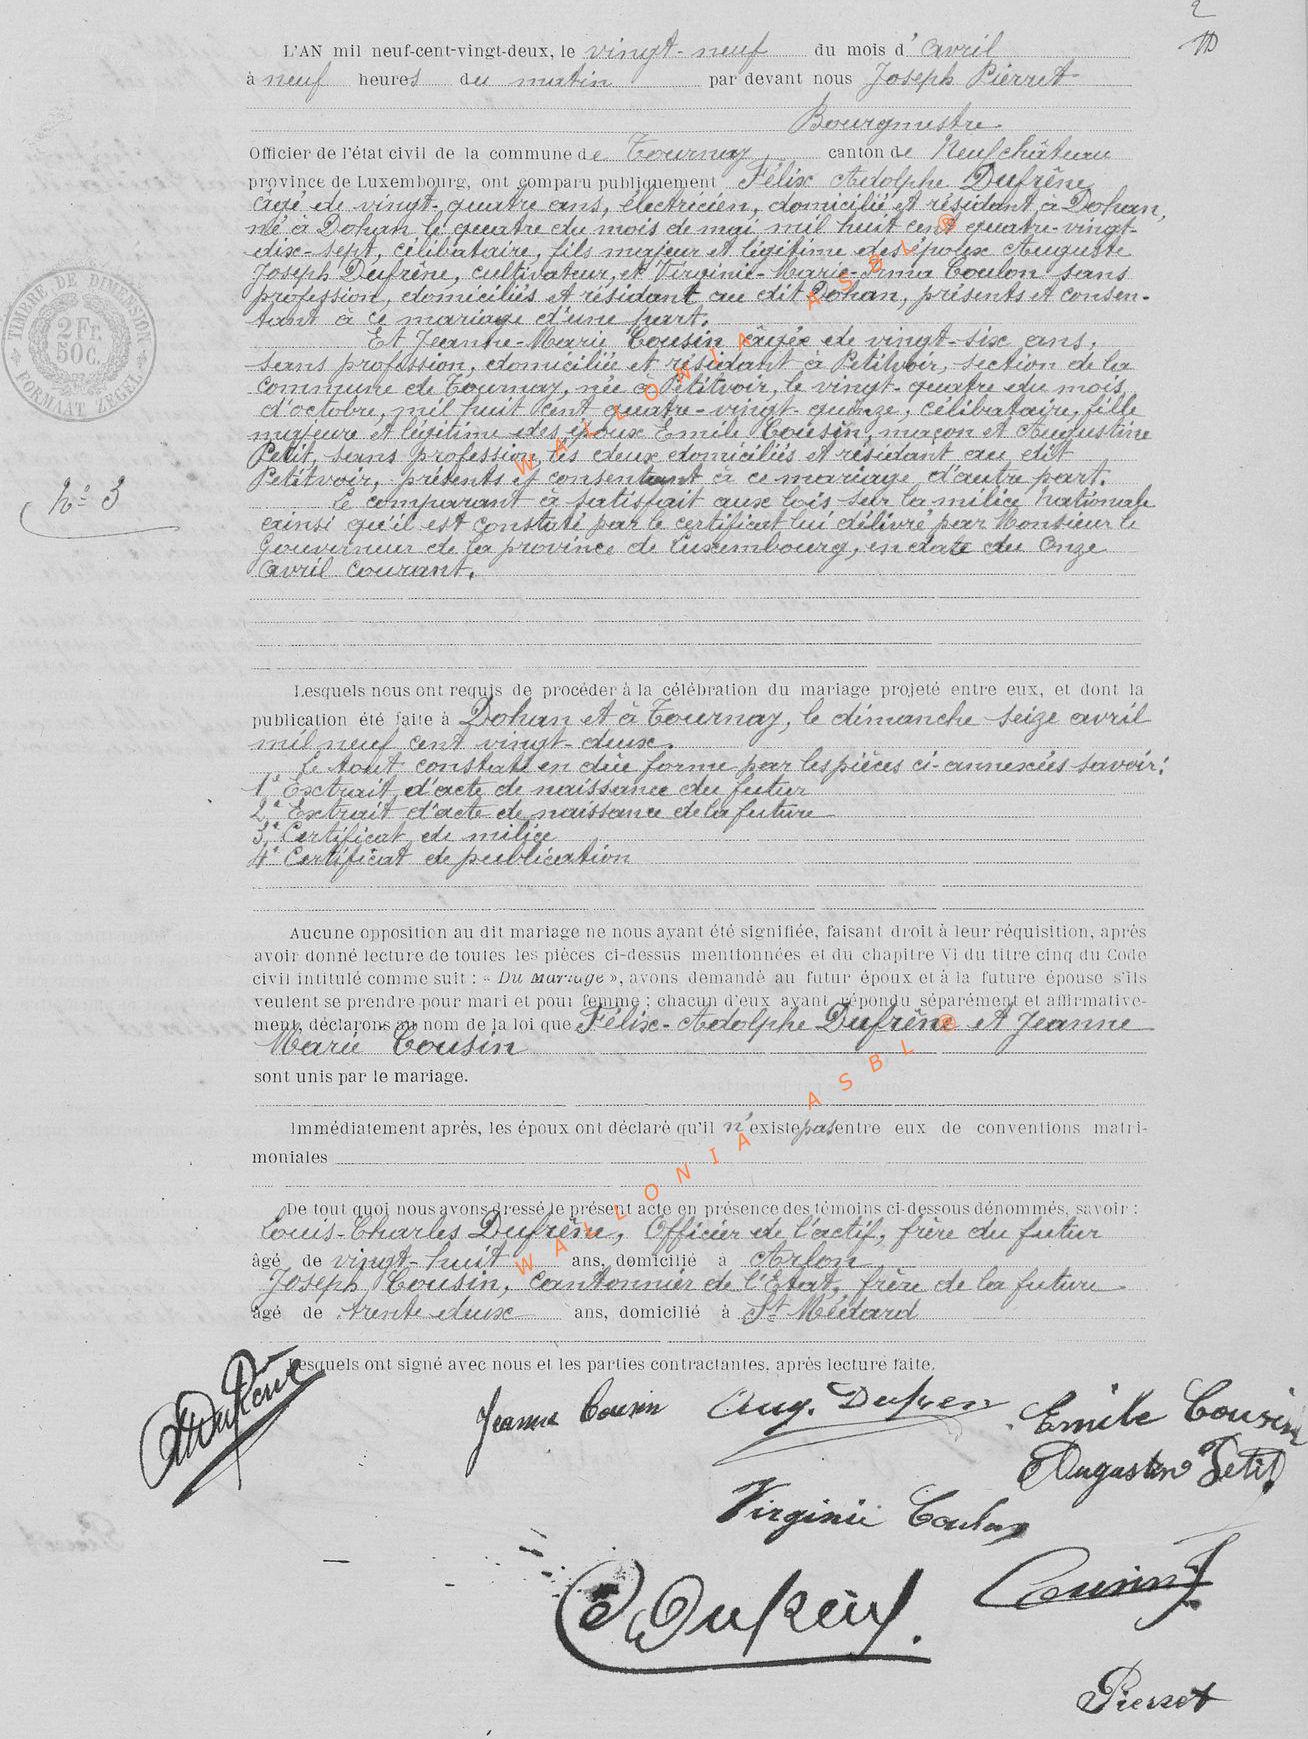 2
L'AN mil neuf-cent-vingt-deux, le vingt-neuf du mois d'avril
à neuf heures du matin par devant nous Joseph Pierret
Bourgmestre
Officier de l'état civil de la commune de Tournay canton de Neufchâteau
province de Luxembourg, ont comparu publiquement Félix Adolphe Dufrêne
âgé de vingt-quatre ans, électricien, domicilié et résidant à Dohan,
né à Dohan le quatre du mois de mai mil huit cent quatre-vingt-
dix-sept, célibataire, fils majeur et légitime des époux Auguste
Joseph Dufrêne, cultivateur, et Virginie-Marie-Irma Coulon sans
profession, domiciliés et résidant au dit Dohan, présents et consen-
tant à ce mariage d'une part.
Et Jeanne-Marie Cousin âgée de vingt-six ans,
sans profession, domiciliée et résidant à Petitvoir, section de la
commune de Tournay, née à Petitvoir, le vingt-quatre du mois
d'octobre, mil huit cent quatre-vingt-quinze, célibataire, fille
majeure et légitime des époux Emile Cousin, maçon et Augustine
Petit, sans profession, les deux domiciliés et résidant au dit
Petitvoir, présents et consentant à ce mariage d'autre part.
Le comparant à satisfait aux lois sur la milice Nationale
ainsi qu'il est constaté par le certificat lui délivré par Monsieur le
Gouverneur de la province de Luxembourg, en date du Onze
Avril courant.
TIMBRE DE DIMENSION
2 Fr.
50 C.
FORMAAT ZEGEL
N° 3
Lesquels nous ont requis de procéder à la célébration du mariage projeté entre eux, et dont la
publication été faite à Dohan et à Tournay, le dimanche seize avril
mil neuf cent vingt-deux.
Le tout constaté en due forme par les pièces ci-annexées savoir:
1° Extrait d'acte de naissance du futur
2° Extrait d'acte de naissance de la future
3° Certificat de milice
4° Certificat de publication
Aucune opposition au dit mariage ne nous ayant été signifiée, faisant droit à leur réquisition, après
avoir donné lecture de toutes les pièces ci-dessus mentionnées et du chapitre VI du titre cinq du Code
civil intitulé comme suit : « Du Mariage », avons demandé au futur époux et à la future épouse s'ils
veulent se prendre pour mari et pour femme ; chacun d'eux ayant répondu séparément et affirmative-
ment, déclarons au nom de la loi que Félix-Adolphe Dufrêne et Jeanne
Marie Cousin
sont unis par le mariage.
Immédiatement après, les époux ont déclaré qu'il n'existe pas entre eux de conventions matri-
moniales
De tout quoi nous avons dressé le présent acte en présence des témoins ci-dessous dénommés, savoir :
Louis-Charles Dufrêne, Officier de l'actif, frère du futur
âgé de vingt-huit ans, domicilié à Arlon
Joseph Cousin, Cantonnier de l'Etat, frère de la future
âgé de trente deux ans, domicilié à St Médard
Lesquels ont signé avec nous et les parties contractantes, après lecture faite.
Jeanne Cousin Aug. Dufren Emile Cousin
Augustine Petit
Virginie Coulon
Cousin J
Pierret
WALLONIA ASBL ®
WALLONIA ASBL ®